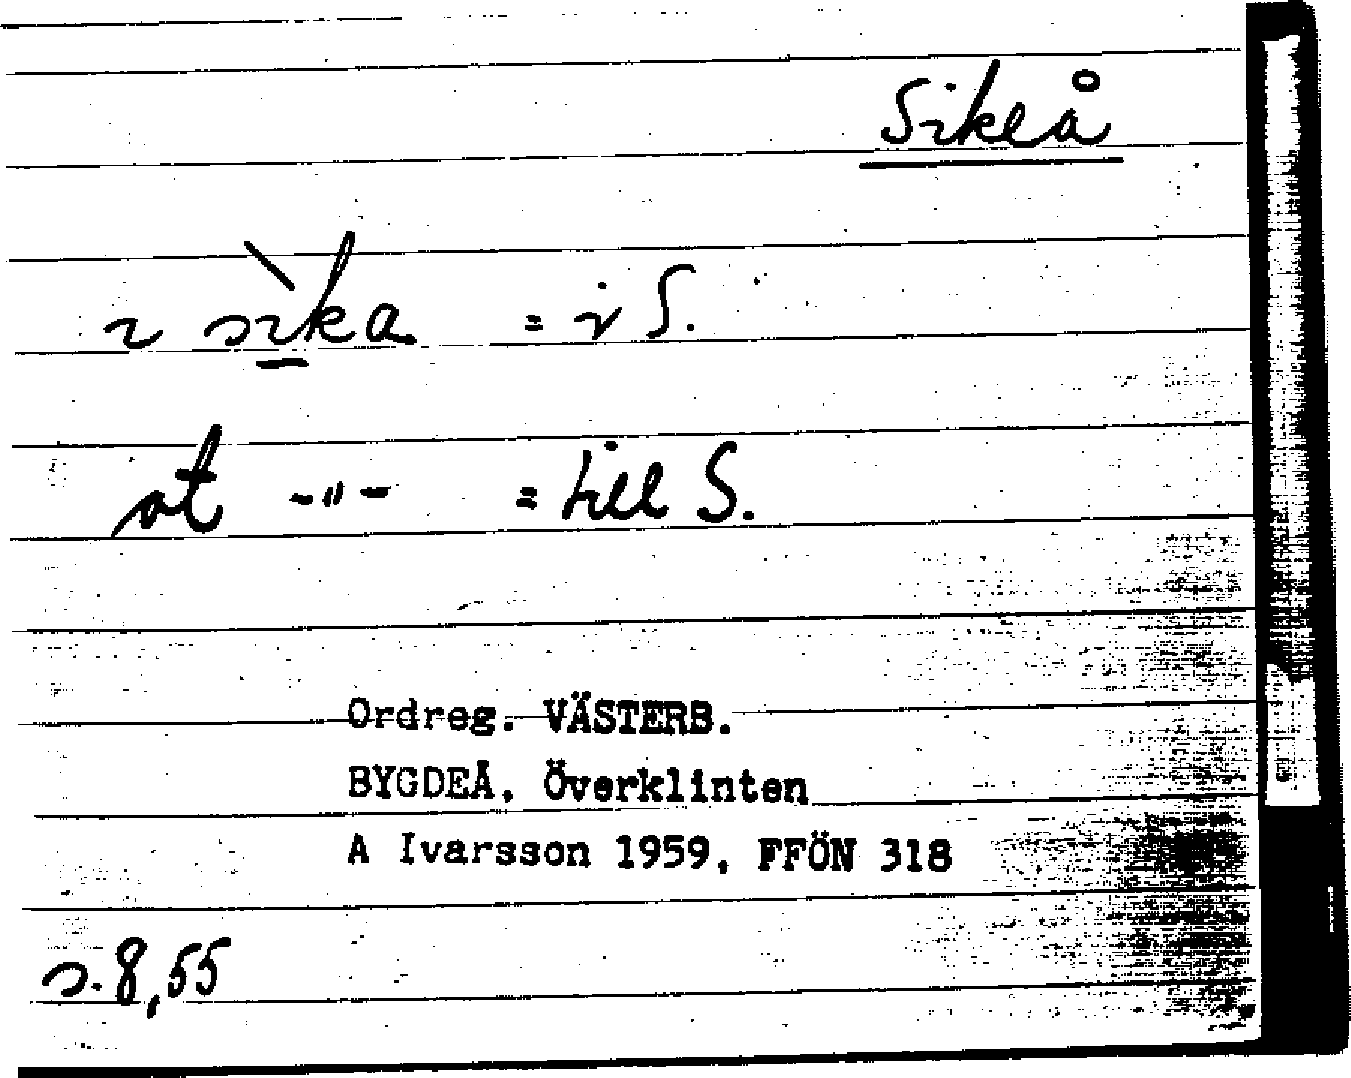 Sikeå
ı sı̱̀ka = i S.
at -"- = till S.
Ordreg. VÄSTERB.
BYGDEÅ, Överklinten
A Ivarsson 1959, FFÖN 318
s. 8,55